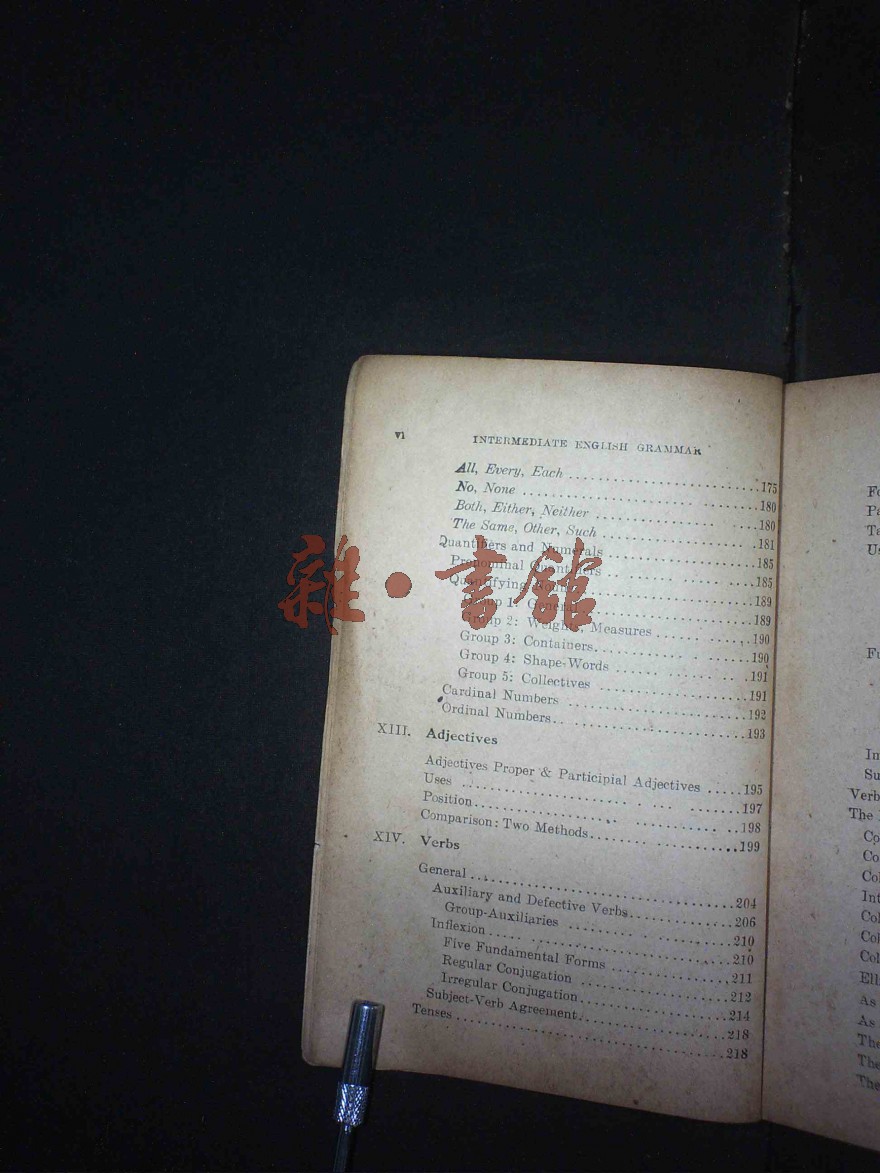 vi INTERMEDIATE ENGLISH GRAMMAR
All, Every, Each ..........175
No, None ..........180
Both, Either, Neither ..........180
The Same, Other, Such ..........181
Quantifiers and Numerals ..........185
Pronominal Quantifiers ..........185
Quantifying Nouns ..........189
Group 1: General ..........189
Group 2: Weights, Measures ..........190
Group 3: Containers ..........190
Group 4: Shape-Words ..........191
Group 5: Collectives ..........191
Cardinal Numbers ..........192
Ordinal Numbers ..........193
XIII. Adjectives
Adjectives Proper & Participial Adjectives .....195
Uses ..........197
Position ..........198
Comparison: Two Methods ..........199
XIV. Verbs
General ..........204
Auxiliary and Defective Verbs ..........206
Group-Auxiliaries ..........210
Inflexion ..........210
Five Fundamental Forms ..........211
Regular Conjugation ..........212
Irregular Conjugation ..........214
Subject-Verb Agreement ..........218
Tenses ..........218
雜·書館
Verb
The
As
As
The
The
The